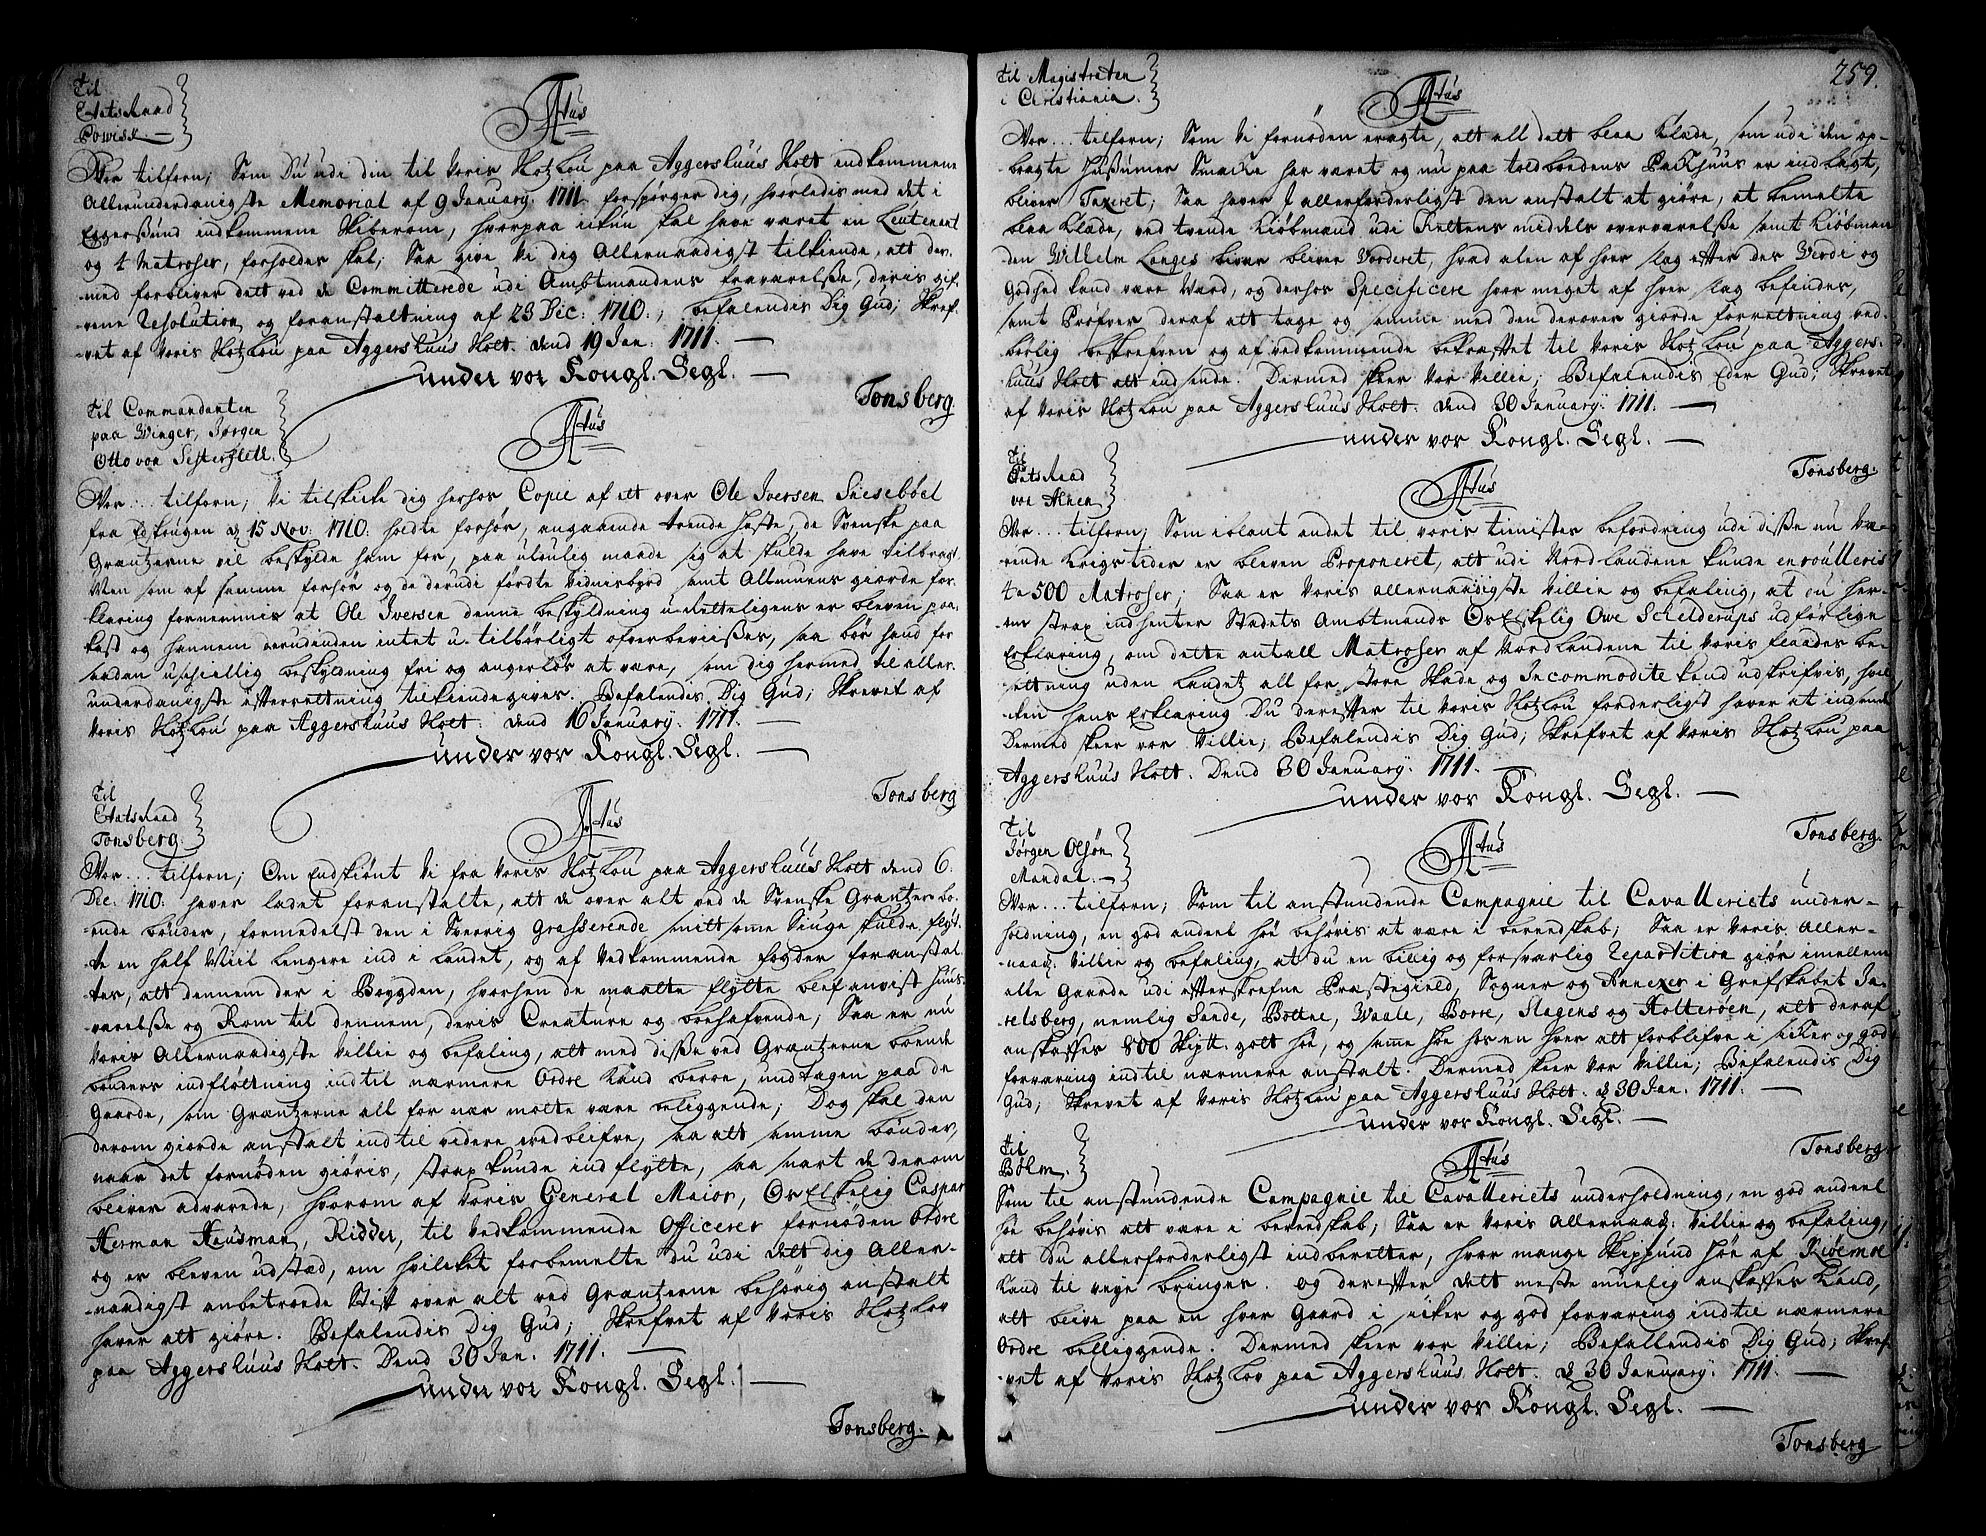 Til
Etats Raad
Powisk. —
Atus
Vor tilforn; Som Du udi din til Voris Slotzlou paa Aggershuus Slott indkommene
Allerunderdanigste Memorial af 9 January. 1711. forspørger dig, hvorledis med det i
Eggersund indkommene Skiberom, hvorpaa ickun skal have været en Leutenant
og 4 Matroser, forholdes skal; Saa give Vi dig Allernaadigst tilkiende, att der-
med forbliver dett ved de Committerede udi Ambtmandens fraværelse, deris gif-
vene Resolution og foranstaltning af 23 Dec: 1710.; befalendis Dig Gud; Skref-
vet af Voris Slotzlou paa Aggershuus Slott. dend 19 Jan: 1711. —
under vor Kongl. Segl. —
Tonsberg
Til Commandanten
paa Winger, Jørgen
Otto von Sesterflett.
Atus
Vor... tilforn; Vi tilskicke dig herhos Copie af ett over Ole Iversen
fra Edskougen d 15 Nov: 1710. holdte forhør, angaaende trende heste, de Svenske paa
Grændtzerne vil beskylde ham for, paa ulovlig maade sig at skulde have tilbragt.
Men som af samme forhør og de derudi førdte Vidnisbyrd samt Almuens giorde for-
klaring fornemmis at Ole Iversen denne beskyldning u-Retteligens er bleven paa-
kast og hannem derudinden intet u-tilbørligt ofverbevises, saa bør hand for
saadan uskiellig beskyldning fri og angerløs at være, som dig hermed til aller-
underdanigste efterrettning tilkiendegives. Befalendis Dig Gud; Skrevet af
Voris Slotzlou paa Aggershuus Slott. dend 16 January. 1711. —
under vor Kongl. Segl. —
Tonsberg
Til
Etats Raad
Tonsberg.
Atus
Vor... tilforn; Om Endskiønt Vi fra Voris Slotzlou paa Aggershuus Slott dend 6.
Dec. 1710. haver ladet foranstalte, att de over alt ved de Svenske Grantzer bo-
ende bønder, formedelst den i Sverrig Grasserende smittsomme Siuge skulde flyt-
te en half Miil lengere ind i Landet, og af Vedkommende fogder foranstal-
tes, att dennem der i Boygden, hvorhen de maatte flytte blef anvist huus
værelse og Rom til dennem, deris Creature og boehafvende; Saa er nu
Voris Allernaadigste Villie og befaling, att med disse ved Grantzerne boende
bønders indfløttning indtil nærmere Ordre kand beroe, undtagen paa de
Gaarde, som Grantzerne all for nær motte være beliggende; Dog skal den
derom giorde anstalt indtil videre vedblifve, saa att samme bønder,
naar det fornøden giøris, strax kunde indflytte, saa snart de derom
bliver advarede, hvorom af Voris General Maior, Os Elskelig Caspar
Herman Hausman, Ridder, til Vedkommende Officerer fornøden Ordre
og er bleven udstæd, om hvilcket forbemelte du udi dett dig Aller-
naadigst anbetroede Stift over alt ved Grantzerne behørig anstalt
haver att giøre. Befalendis Dig Gud; Skrefvet af Voris Slotzlov
paa Aggershuus Slott. Dend 30 Jan. 1711. —
under vor Kongl. Segl. —
Tonsberg.
259.
Til Magistraten
i Christiania.
Atus
Vor... tilforn; Som Vi fornøden eragte, att all dett blaa Klæde, som udi den op-
bragte Hussumer Smacke har været og nu paa toldbodens Packhuus er indlagt,
bliver Taxeret; Saa haver I allerforderligst den anstalt at giøre, at bemelte
blaa Klæde, ved tvende Kiøbmænd udi Rettens middels overværelse samt Kiøbman-
den Wilhelm Langes bliver Vorderet, hvad alen af hver slag efter des Verdi og
Godhed kand være Værd, og derhos Specificere hvor meget af hver slag befindes,
samt Prøfver deraf att tage og samme med den derover giorde forrettning ved-
børlig beskrefven og af vedkommende bekræftet til Voris Slotzlou paa Aggers-
huus Slott att indsende. Dermed skeer Vor Villie; Befalendis Eder Gud; Skrevet
af Voris Slotzlou paa Aggershuus Slott. dend 30 January: 1711. —
under vor Kongl. Segl. —
Tonsberg.
Til
Etats Raad
von Ahnen
Atus
Vor... tilforn; Som iblant andet til voris tienistes befordring udi disse nu Væ-
rende Krigs tider er bleven Proponeret, att udi Nordlandene kunde enroulleris
4 a 500 Matroser; Saa er Voris allernaadigste Villie og befaling, at du her-
om strax indhenter Stædets Ambtmands Os Elskelig Ove Schielderups udforlige
Erklæring, om dette antall Matroser af Nordlandene til Voris flaades be-
settning uden Landetz all for store Skade og Incommodite kand udskrifvis, hvil-
cken hans Erklæring Du derefter til Voris Slotzlou forderligst haver at indsende
Dermed skeer vor Villie; Befalendis Dig Gud; Skrefvet af Voris Slotzlou paa
Aggershuus Slott. Dend 30 January. 1711. —
under vor Kongl. Segl. —
Tonsberg.
Til
Jørgen Olsøn
Mandal. —
Atus
Vor... tilforn; Som til anstundende Campagnie til Cavalleriets under-
holdning, en god andeel høe behøvis at være i beredskab; Saa er Voris Aller-
naad: Villie og befaling, at du en billig og forsvarlig Repartition giør imellem
alle Gaarde udi efterskrefne Præstegield, Sogner og Annexer i Grefskabet Ja-
relsberg, nemlig Sande, Bottne, Waale, Borre, Slagens og Nøtterøen, att deraf
anskaffes 800 Skiptt. gott høe, og samme høe hos en hver att forblifve i sicker og god
forvaring indtil nærmere anstalt. Dermed skeer vor Villie; Befalendis Dig
Gud; Skrevet af Voris Slotzlou paa Aggershuus Slott. d 30 Jan. 1711. —
under vor Kongl. Segl. —
Tonsberg.
Til
Bøhm.
Atus
Som til anstundende Campagnie til Cavalleriets underholdning, en god andeel
høe behøvis att være i beredskab; Saa er Voris Allernaad: Villie og befaling,
att Du allerforderligst indberetter, hvor mange Skippund høe af
kand til veye bringes. og derefter dett meste muelig anskaffes kand,
att blive paa en hver Gaard i sicker og god forvaring indtil nærmere
Ordre belliggende. Dermed skeer vor Villie; Befallendis Dig Gud; Skref-
vet af Voris Slotzlov paa Aggershuus Slott. d 30 January. 1711. —
under vor Kongl. Segl. —
Tonsberg